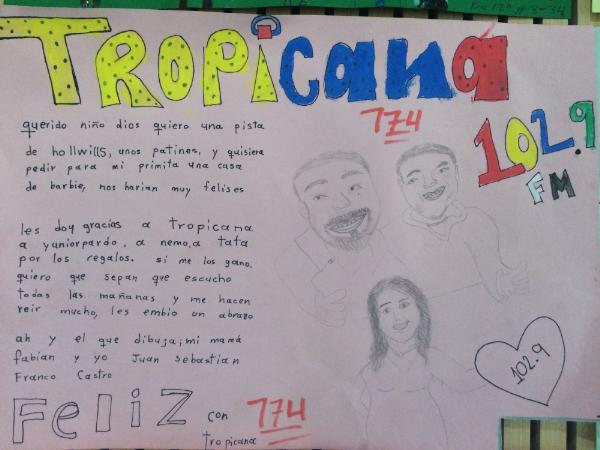 TROPiCana
774
102.9
FM
querido niño dios quiero una pista
de hollwills, unos patines, y quisiera
pedir para mi primita una casa
de barbie, nos harian muy felises
les doy gracias a tropicana
a yuniorpardo, a nemo, a tata
por los regalos. si me los gano.
quiero que sepan que escucho
todas las mañanas y me hacen
reir mucho, les embio un abrazo
ah y el que dibuja; mi mamá
fabian y yo Juan sebastian
Franco Castro
102.9
FeLiZ con 774
tropicana